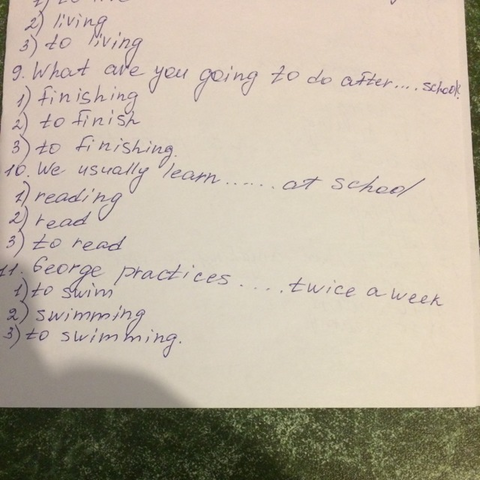 2) living
3) to living
9. What are you going to do after.... school?
1) finishing
2) to finish
3) to finishing.
10. We usually learn...... at school
1) reading
2) read
3) to read
11. George practices .... twice a week
1) to swim
2) swimming
3) to swimming.